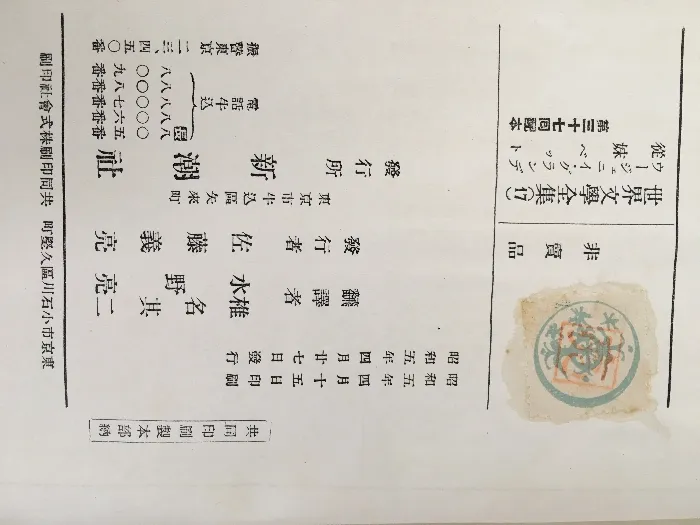 非賣品
世界文學全集(17)
ウージェニイ・グランデ
從妹ベット
第三十七回配本
共同印刷製本部納
昭和五年四月十五日印刷
昭和五年四月廿七日發行
翻譯者 水野亮
椎名其二
發行者 佐藤義亮
東京市牛込區矢來町
發行所 新潮社
電話牛込
八〇五番
八〇六番
八〇七番
八〇八番
八〇九番
振替東京二三、四五〇番
東京市小石川區久堅町 共同印刷株式會社印刷